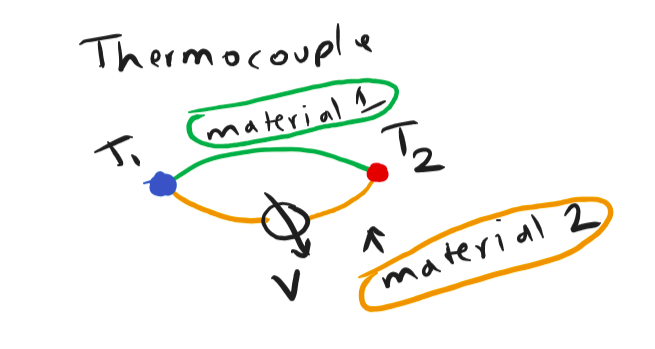 Thermocouple
material 1
T1
T2
material 2
V